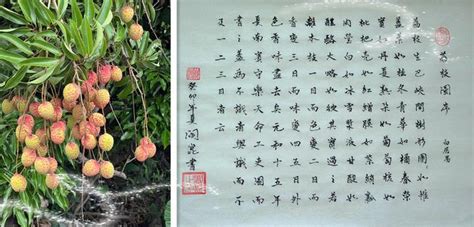 荔枝圖序
白居易
荔枝生巴峽間樹形團團如帷
蓋葉如桂冬青華如橘春榮
實如丹夏熟朵如葡萄核如
枇杷殼如紅繒膜如紫綃瓤
肉瑩白如冰雪漿液甘酸如
醴酪大略如彼其實過之若
離本枝一日而色變二日而
香變三日而味變四五日外
色香味盡去矣元和十五年
夏南賓守樂天命工吏圖而
書之蓋為不識者與識而不
及一二三日者云
癸卯年夏